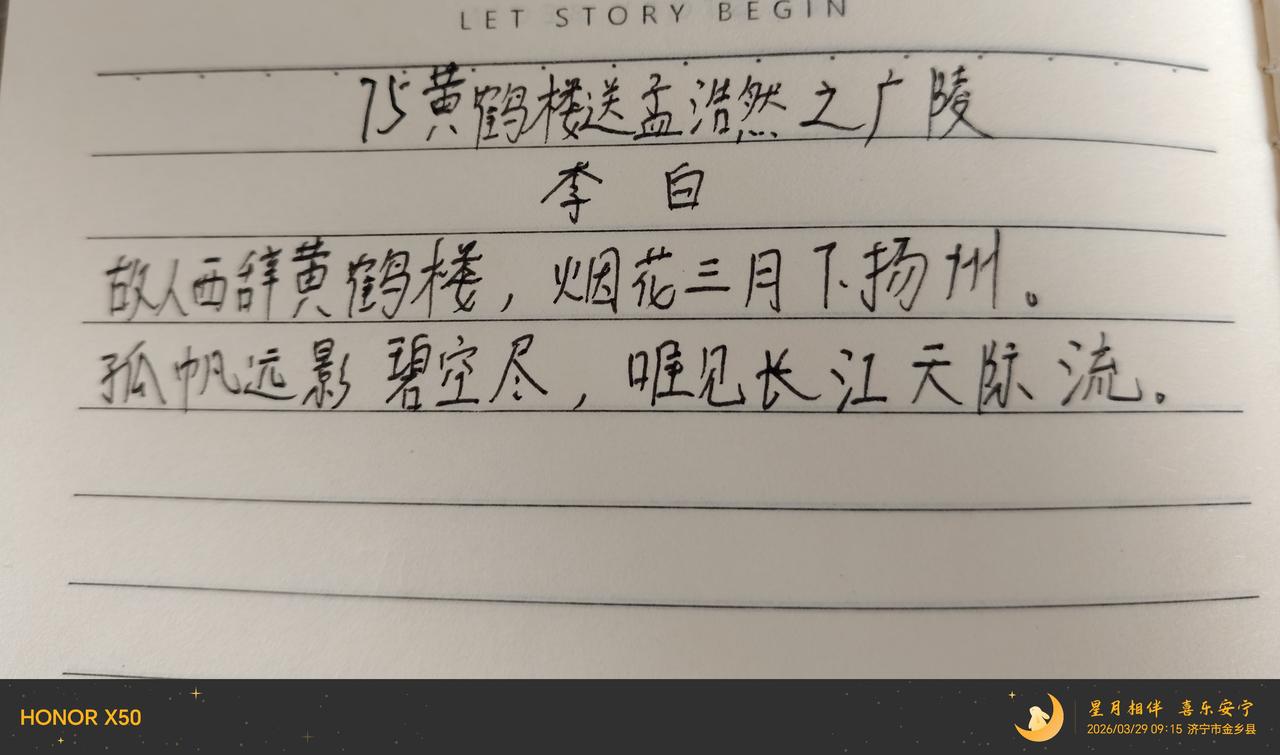 LET STORY BEGIN
75黄鹤楼送孟浩然之广陵
李 白
故人西辞黄鹤楼，烟花三月下扬州。
孤帆远影碧空尽，唯见长江天际流。
HONOR X50
星月相伴 喜乐安宁
2026/03/29 09:15 济宁市金乡县